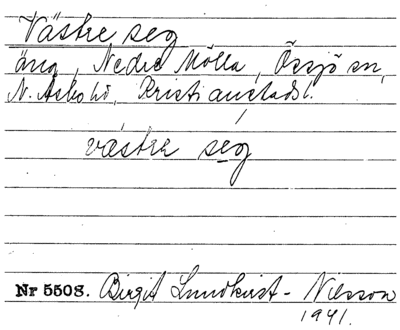 Västre seg
äng, Nedre Mölla, Össjö sn,
N. Asbo hd, Kristianstads l.
västre seg
Nr 5508. Birgit Lundkvist - Nilsson
1941.